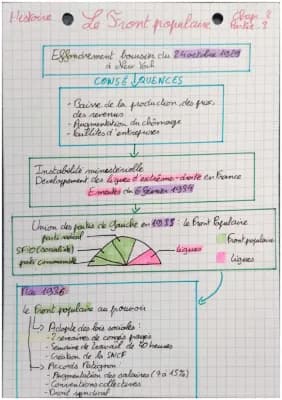 Histoire
Le Front populaire
Chap. 2
Partie 2
Effondrement boursier du 24 octobre 1929
à New York
CONSÉQUENCES
- Baisse de la production, des prix,
des revenus
- Augmentation du chômage
- Faillites d'entreprises
Instabilité ministérielle
Développement des ligues d'extrême-droite en France
Emeutes du 6 février 1934
Union des partis de Gauche en 1935 : le Front Populaire
parti radical
SFIO (socialiste)
parti communiste
ligues
Front populaire
Ligues
Mai 1936
le Front populaire au pouvoir
→ Adopte des lois sociales :
- 2 semaines de congés payés
- Semaine de travail de 40 heures
- Création de la SNCF
→ Accords Matignon
- Augmentation des salaires (7 à 15%)
- Conventions collectives
- Droit syndical